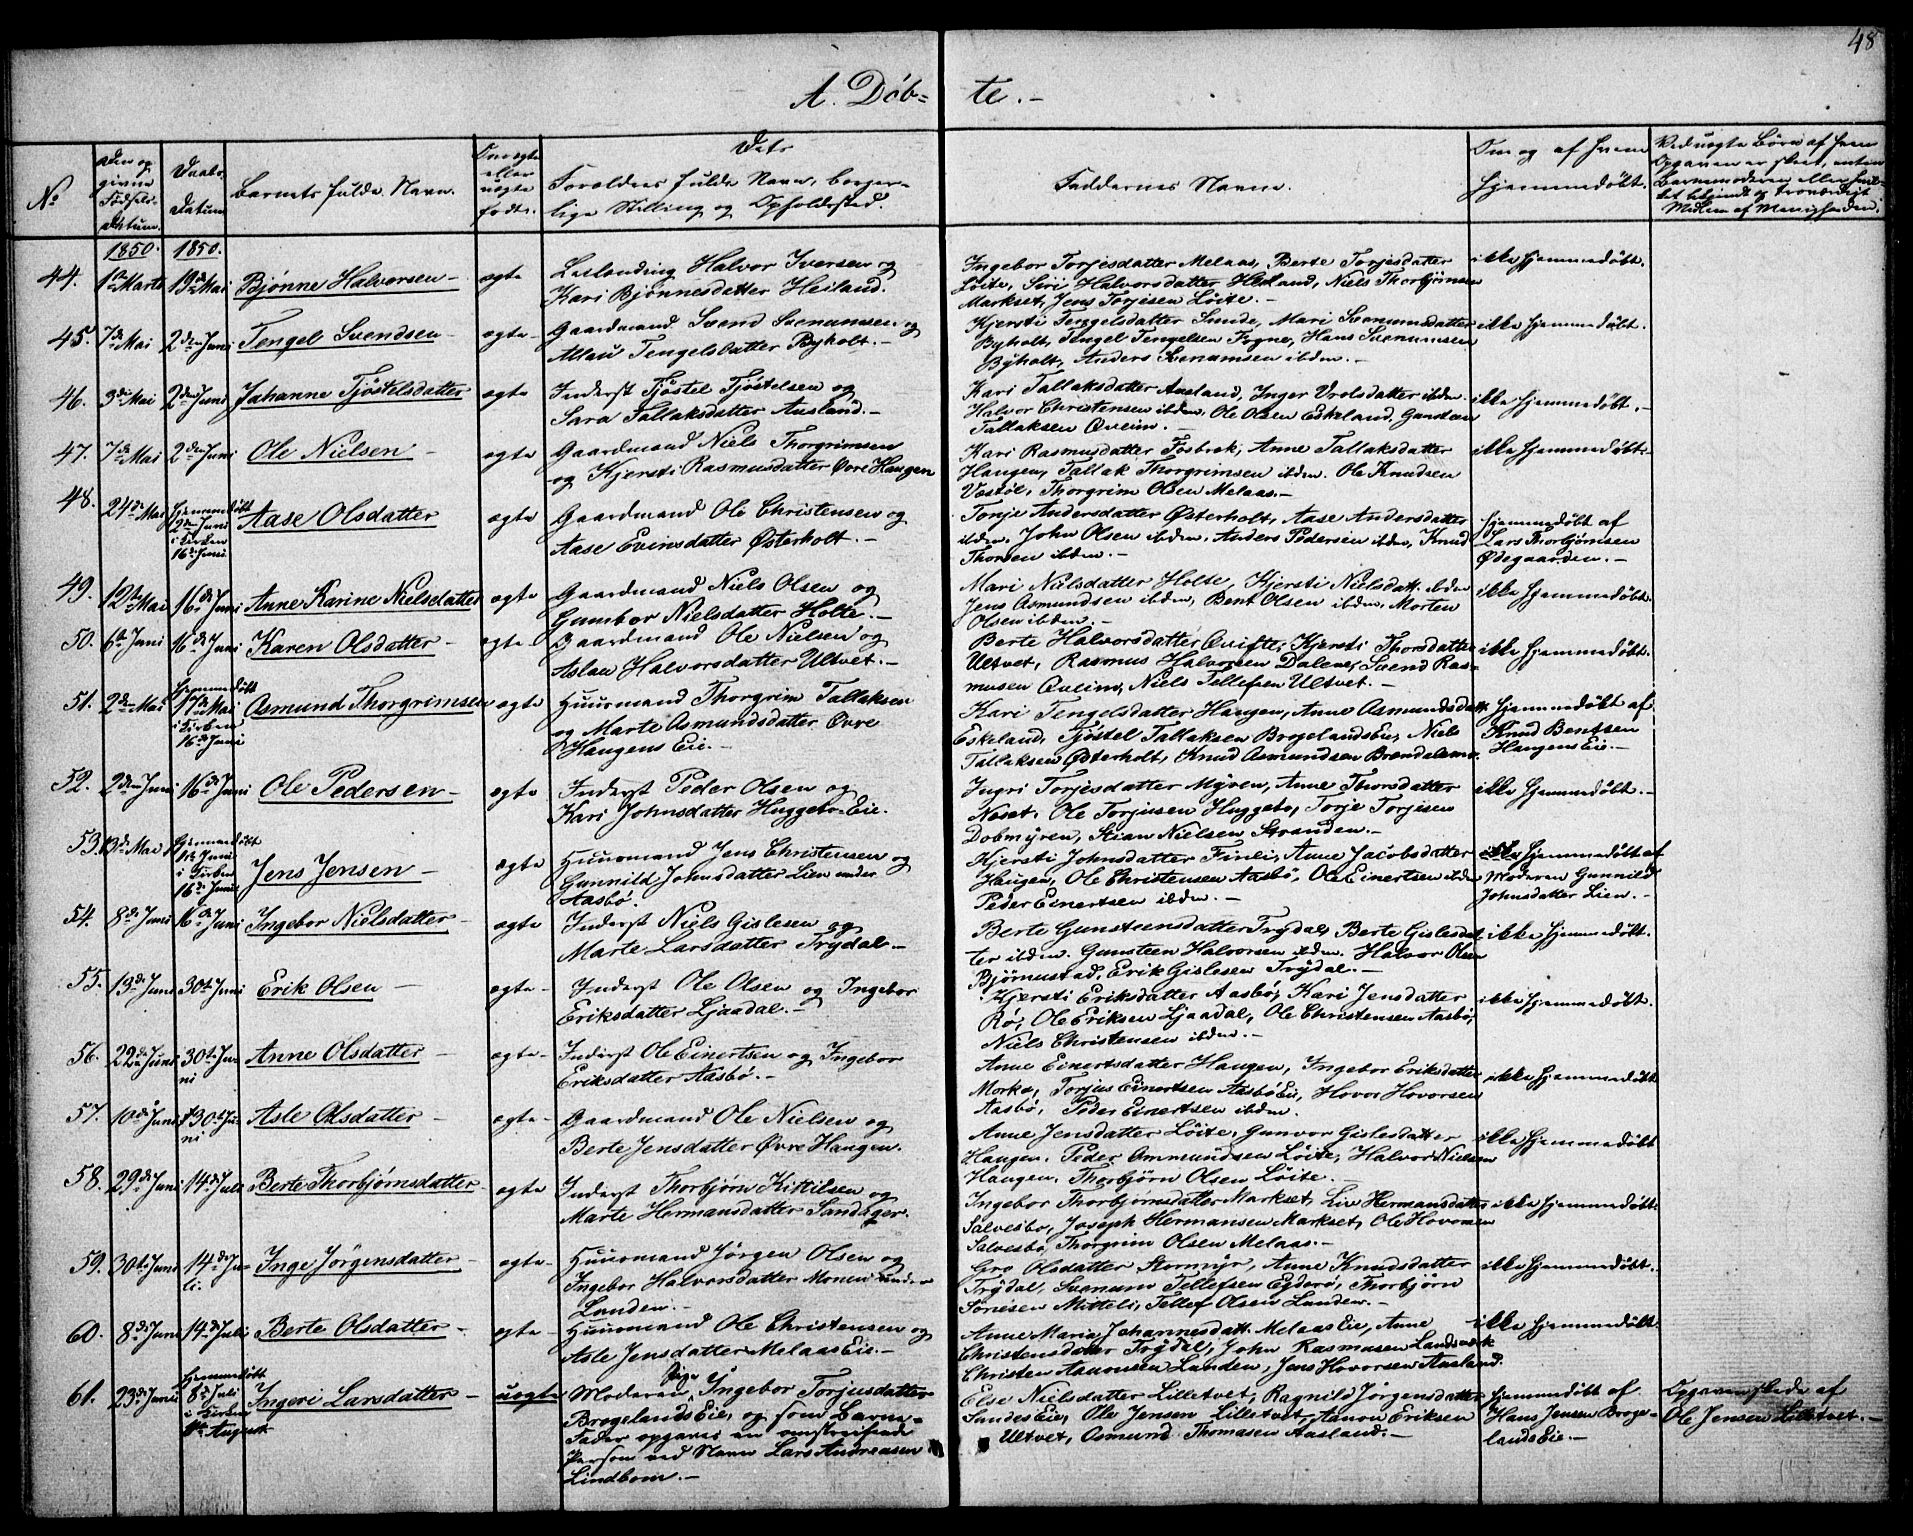 48
A. Døb- te.-
No
Den og givne Fødsels-Datum.
Daabs-Datum
Barnets fulde Navn.
Om ægte eller uægte født.
Dets Forældres fulde Navn, borger-
lige Stilling og Opholdssted.
Faddernes Navne.
Om og af hvem
hjemmedøbt.
Ved uægte Børn af hvem
Opgaven er skeet, enten
Barnemoderen eller
bekjendt og troværdigt
Medlem af Menigheden.
1850. 1850.
44. 1ste Marts 19de Mai Bjønne Halvorsen - ægte Halvor Iversen og
Kari Bjønnesdatter Heiland.
Ingebor Torjesdatter Melaas, Berte Torjesdatter
Løite, Siri Halvorsdatter Heiland, Niels Thorbjørnsen
Markset, Jens Torjesen Løite.-
ikke hjemmedøbt.
45. 7de Mai 2den Juni Tengel Svendsen - ægte- Gaardmand Svend Svenumsen og
Aslau Tengelsdatter Byholt.-
Kjersti Tengelsdatter Sunde, Mari Svenumsdatter
Byholt, Tengel Tengelsen Fogne, Hans Svenumsen
Byholt, Anders Svenumsen ibdm.-
ikke hjemmedøbt.
46. 3die Mai 2den Juni Johanne Tjøstelsdatter ægte Inderst Tjøstel Tjøstelsen og
Sara Tallaksdatter Aasland.-
Kari Tallaksdatter Aasland, Inger Vrolsdatter ibdm.
Halvor Christensen ibdm, Ole Olsen Eskeland, Gunsteen
Tallaksen Qveim.-
ikke hjemmedøbt.-
47. 7de Mai 2den Juni Ole Nielsen - ægte Gaardmand Niels Thorgrimsen
og Kjersti Rasmusdatter Øvre Haugen
Kari Rasmusdatter Fosbrek, Anne Tallaksdatter
Haugen, Tallak Thorgrimsen ibdm. Ole Knudsen
Vestøl, Thorgrim Olsen Melaas.-
ikke hjemmedøbt.
48. 24de Mai hjemmedøbt 2den Juni i Kirken 16de Juni Aase Olsdatter ægte Gaardmand Ole Christensen og
Aase Evinsdatter Østerholt.-
Tonje Andersdatter Østerholt, Aase Andersdatter
ibdm, John Olsen ibdm. Anders Pedersen ibdm, Knud
Thorsen ibdm.-
hjemmedøbt af
Lars Thorbjørnsen
Ødegaarden.-
49. 12te Mai 16de Juni Anne Karine Nielsdatter ægte Gaardmand Niels Olsen og
Gunbor Nielsdatter Holte.-
Mari Nielsdatter Holte, Kjersti Nielsdatt. ibdm
Jens Asmundsen ibdm, Bent Olsen ibdm, Morten
Olsen ibdm.-
ikke hjemmedøbt.
50. 6te Juni 16de Juni Karen Olsdatter - ægte Gaardmand Ole Nielsen og
Aslau Halvorsdatter Ultvet.-
Berte Halvorsdatter Qvifte, Kjersti Thorsdatter
Ultvet, Rasmus Halvorsen Dalene, Svend Ras-
musen Qveim, Niels Tellefsen Ultvet.-
ikke hjemmedøbt.
51. 2den Mai hjemmedøbt 17de Mai i Kirken 16de Juni Asmund Thorgrimsen ægte Huusmand Thorgrim Tallaksen
og Marte Asmundsdatter Øvre
Haugens Eie.-
Kari Tengelsdatter Haugen, Anne Asmundsdatt.
Eskeland, Tjøstel Tallaksen Brogelandseie, Niels
Tallaksen Østerholt, Knud Asmundsen Brændelsmo.
hjemmedøbt af
Knud Bentsen
Haugens Eie.-
52. 2den Juni 16de Juni Ole Pedersen - ægte Inderst Peder Olsen og
Kari Johnsdatter Huggebo Eie.
Ingri Torjesdatter Myren, Anne Thorsdatter
Neset, Ole Torjusen Huggebo, Torje Torjesen
Dobmyren, Stian Nielsen Stranden.-
ikke hjemmedøbt.-
53. 13de Mai Hjemmedøbt Juni i Kirken 16de Juni Jens Jensen - ægte Huusmand Jens Christensen og
Gunnild Johnsdatter Lien under
Aasbø.
Kjersti Johnsdatter Finli, Anne Jacobsdatter
Haugen, Ole Christensen Aasbø, Ole Einertsen ibdm
Peder Einertsen ibdm.-
ikke hjemmedøbt af
Moderen Gunnild
Johnsdatter Lien.-
54. 8de Juni 16de Juni Ingebor Nielsdatter - ægte Inderst Niels Gislesen og
Marte Larsdatter Trydal-
Berte Gunsteensdatter Trydal, Berte Gislesdat-
ter ibdm. Gunsteen Halvorsen ibdm. Halvor Olsen
Bjørnestad, Erik Gislesen Trydal.-
ikke hjemmedøbt.
55. 13de Juni 30te Juni Erik Olsen - ægte- Inderst Ole Olsen og Ingebor
Eriksdatter Ljaadal.-
Kjersti Eriksdatter Aasbø, Kari Jensdatter
Rø, Ole Eriksen Ljaadal, Ole Christensen Aasbø,
Niels Christensen ibdm.-
ikke hjemmedøbt.
56. 22de Juni 30te Ju-ni Anne Olsdatter - ægte- Inderst Ole Einertsen og Ingebor
Eriksdatter Aasbø.-
Anne Einertsdatter Haugen, Ingebor Eriksdatter
Morka, Torjus Einertsen Aasbø Eie, Hovor Hovorsen
Aasbø, Peder Einertsen ibdm.
ikke hjemmedøbt
57. 10de Juni 30te Ju-ni Asle Olsdatter - ægte- Gaardmand Ole Nielsen og
Berte Jensdatter Øvre Haugen.
Anne Jensdatter Løite, Gunvor Gislesdatter
Haugen. Peder Ommundsen Løite, Halvor Nielsen
Haugen, Thorbjørn Olsen Løite.-
ikke hjemmedøbt
58. 29de Juni 14de Juli Berte Thorbjørnsdatter - ægte Inderst Thorbjørn Kittilsen og
Marte Hermansdatter Sandager.
Ingebor Thorbjørnsdatter Markset, Liv Hermansdatter
Salvesbo, Joseph Hermansen Markset, Ole Hovorsen
Salvesbo, Thorgrim Olsen Melaas.-
ikke hjemmedøbt.
59. 30te Juni 14de Ju-li. Inge Jørgensdatter ægte- Huusmand Jørgen Olsen og
Ingebor Halvorsdatter Monen under
Lunden.-
Gro Olsdatter Stormyr, Anne Knudsdatter
Trydal, Svenum Tellefsen Egderø, Thorbjørn
Sørensen Mitteli, Tellef Olsen Lunden.-
ikke hjemmedøbt.
60. 8de Juni 14de Juli Berte Olsdatter - ægte- Huusmand Ole Christensen og
Asle Jensdatter Melaas Eie.-
Anne Maria Johannesdatt. Melaas Eie, Anne
Christensdatter Trydal, John Rasmusen Landsverk
Christen Aanonsen Lunden, Jens Hovorsen Aasland.
ikke hjemmedøbt.
61. 23de Juni hjemmedøbt 8de Juli i Kirken August Ingeri Larsdatter - uægte Moderen Pige Ingebor Torjusdatter
Brogelands Eie, og som Barne-
Fader opgives en omstreifende
Person ved Navn Lars Andreasen
Lindbom.-
Else Nielsdatter Lilletvet, Ragnild Jørgensdatter
Sundes Eie, Ole Jensen Lilletvet, Aanon Eriksen
Ultvet, Osmund Thomasen Aasland.-
hjemmedøbt af
Hans Jensen Broge-
lands Eie.-
Opgaven skede af
Ole Jensen Lilletvet.-